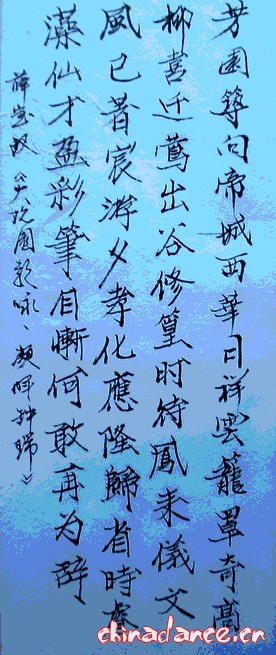 芳園築向帝城西華日祥雲籠罩奇高
柳喜迁鶯出谷修篁时待鳳来儀文
風已著宸游夕孝化應隆歸省時睿
藻仙才盈彩筆自慚何敢再为辞
薛宝钗《大观园题咏、凝晖钟瑞》
chinadance.cn